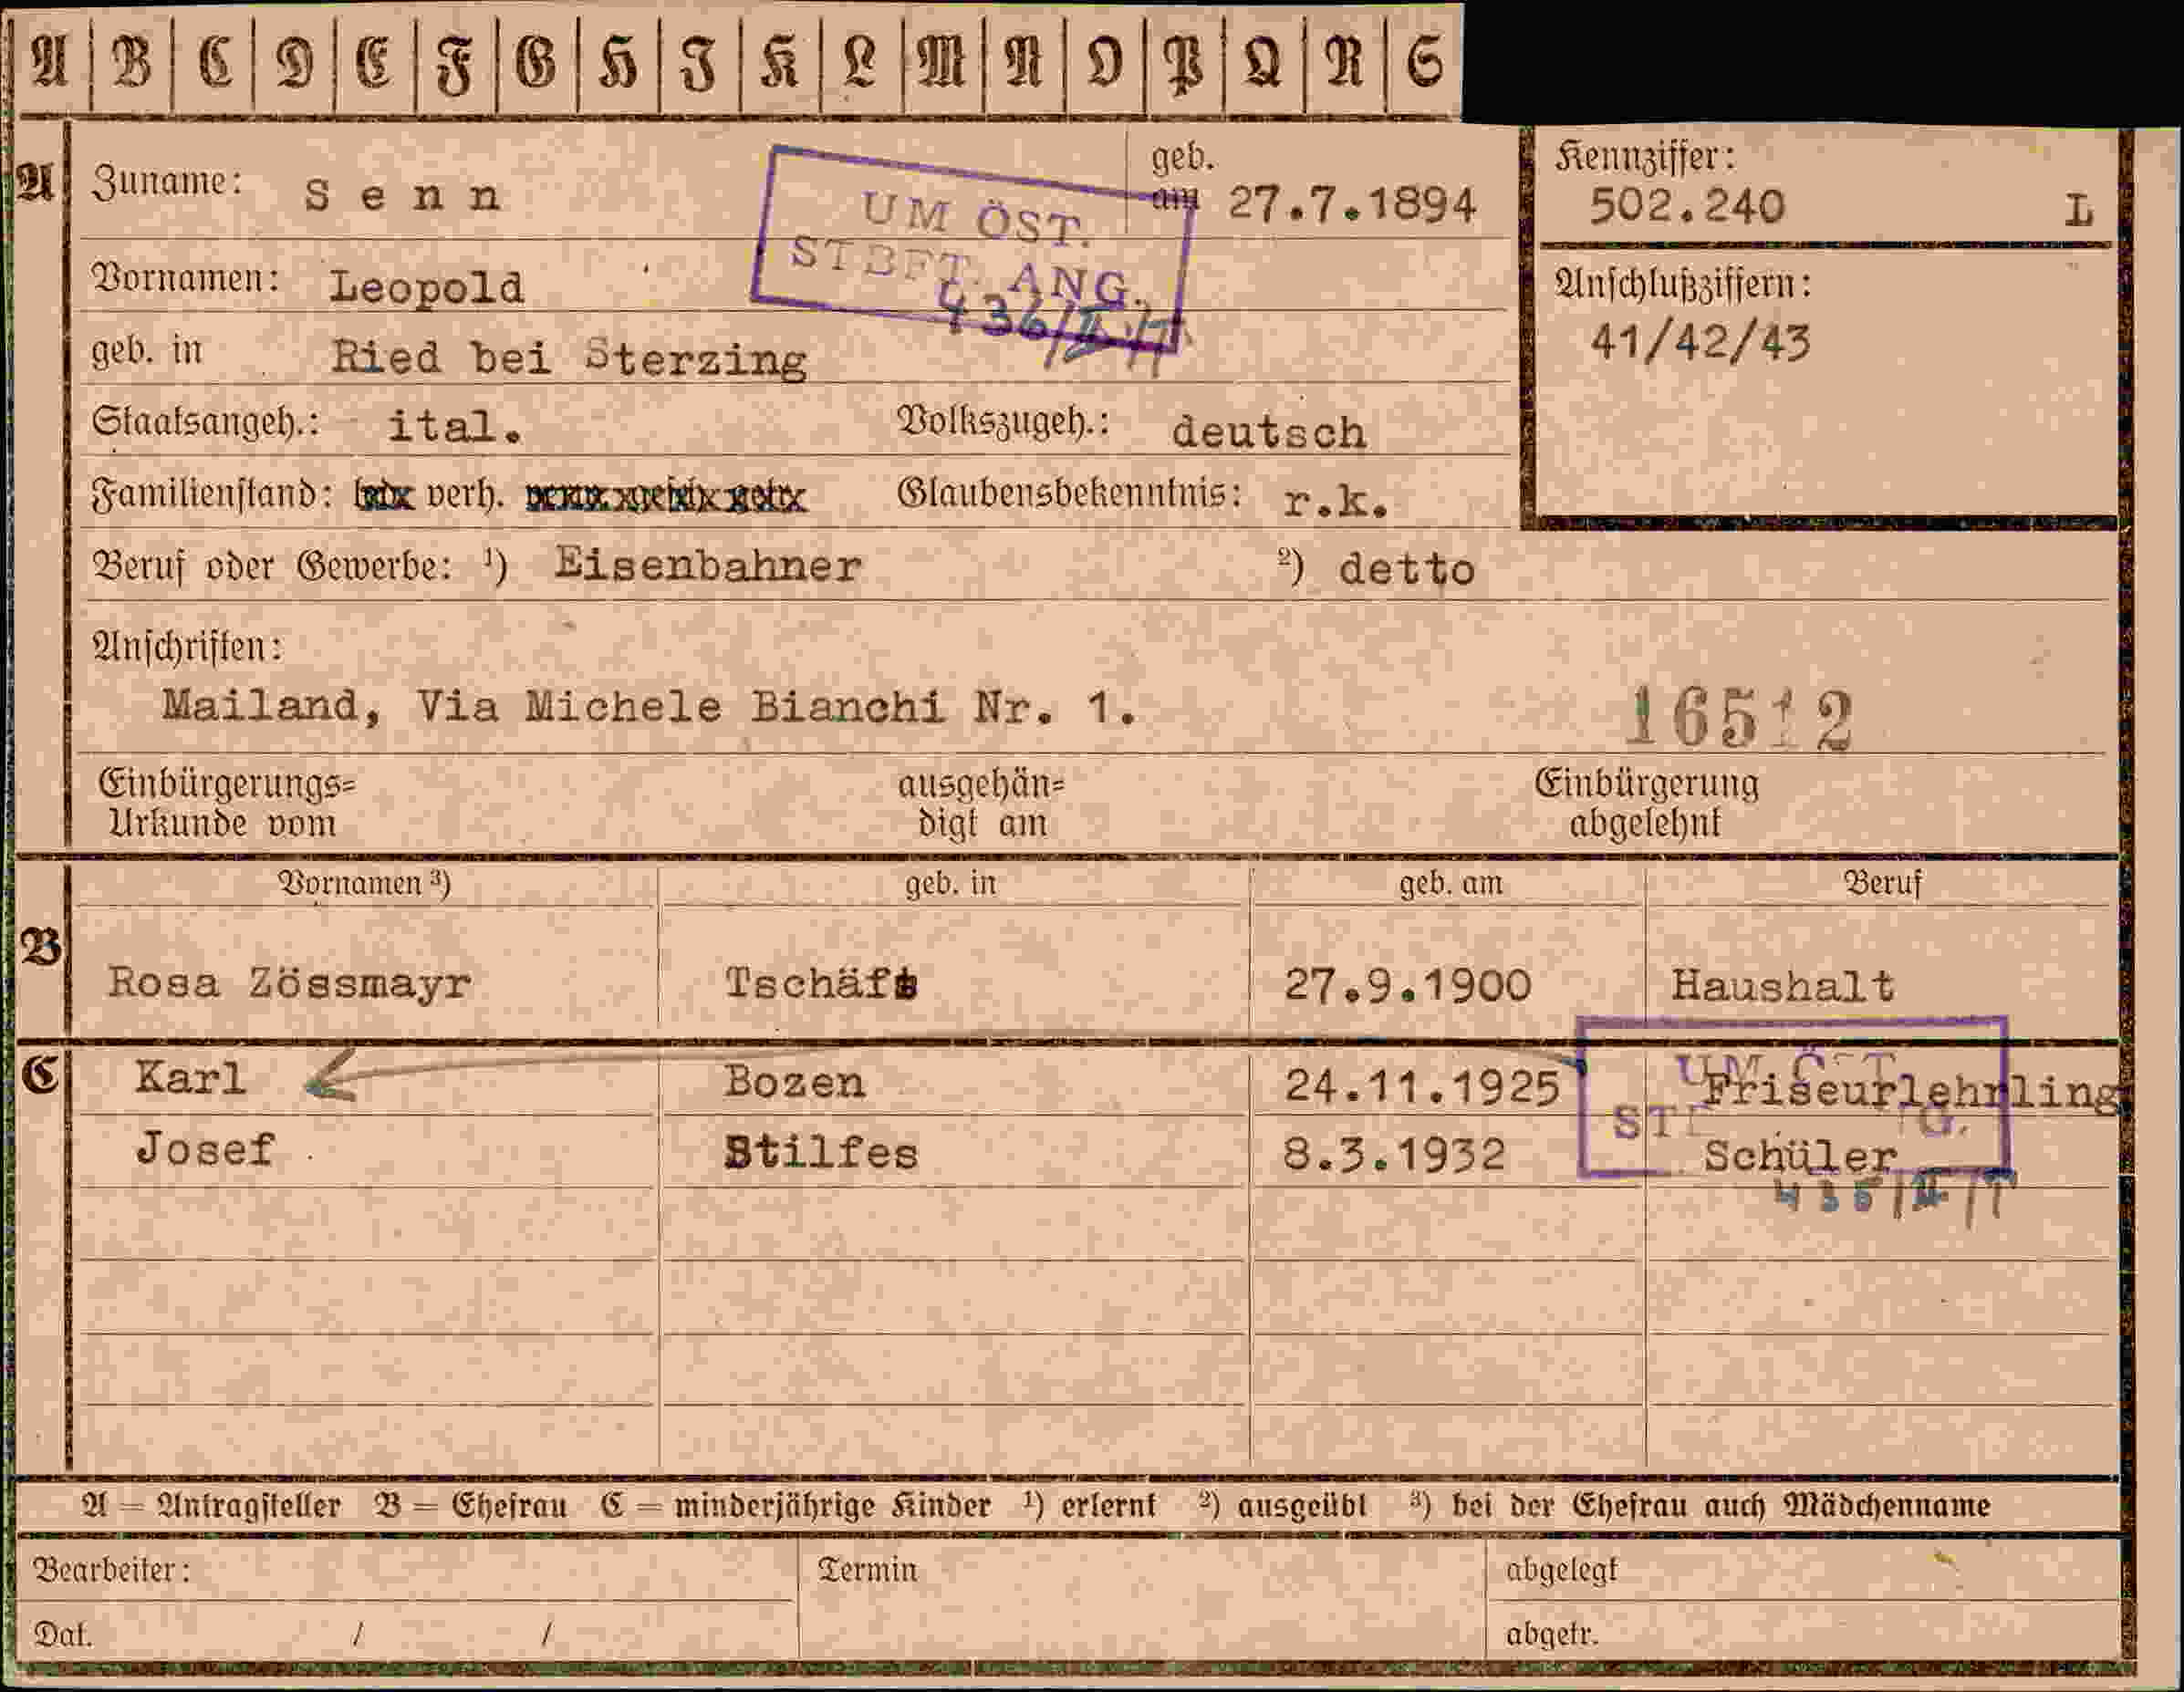 A B C D E F G H I K L M N O P Q R S
A Zuname: Senn geb. am 27.7.1894
Kennziffer: 502.240 L
UM ÖST. STBFT. ANG.
Vornamen: Leopold
Anschlußziffern: 41/42/43
geb. in Ried bei Sterzing
Staatsangeh.: ital. Volkszugeh.: deutsch
Familienstand: verh. Glaubensbekenntnis: r.k.
Beruf oder Gewerbe: ¹) Eisenbahner ²) detto
Anschriften:
Mailand, Via Michele Bianchi Nr. 1. 16512
Einbürgerungs= ausgehän= Einbürgerung
Urkunde vom digt am abgelehnt
Vornamen ³) geb. in geb. am Beruf
B
Rosa Zössmayr Tschäfs 27.9.1900 Haushalt
C Karl Bozen 24.11.1925 Friseurlehrling
Josef Stilfes 8.3.1932 Schüler
A = Antragsteller B = Ehefrau C = minderjährige Kinder ¹) erlernt ²) ausgeübt ³) bei der Ehefrau auch Mädchenname
Bearbeiter: Termin abgelegt
Dat. / / abgetr.